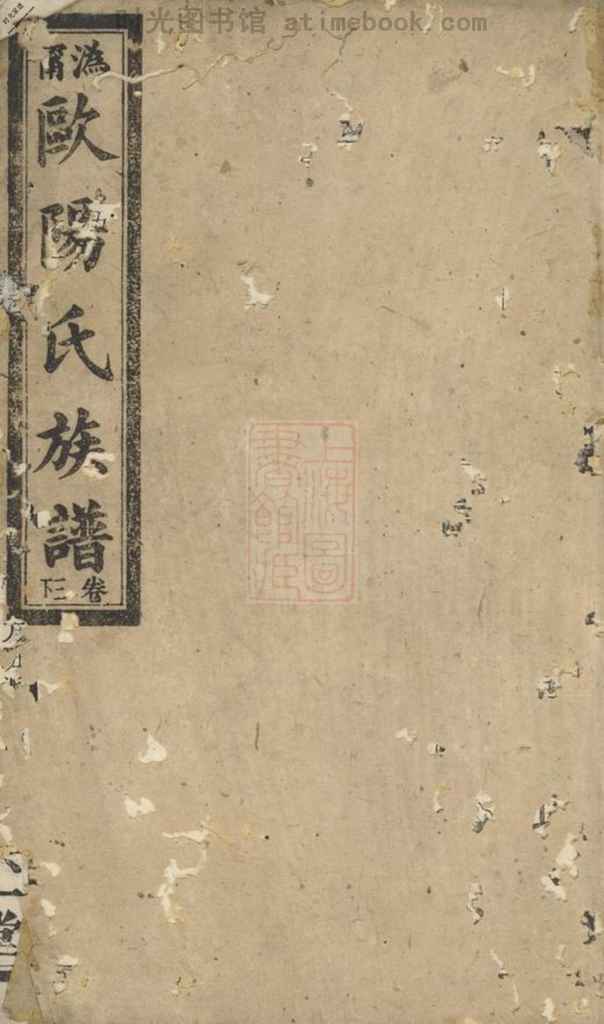 时光图书馆 atimebook.com
歐陽氏族譜
卷三下
上海圖書館藏
堂